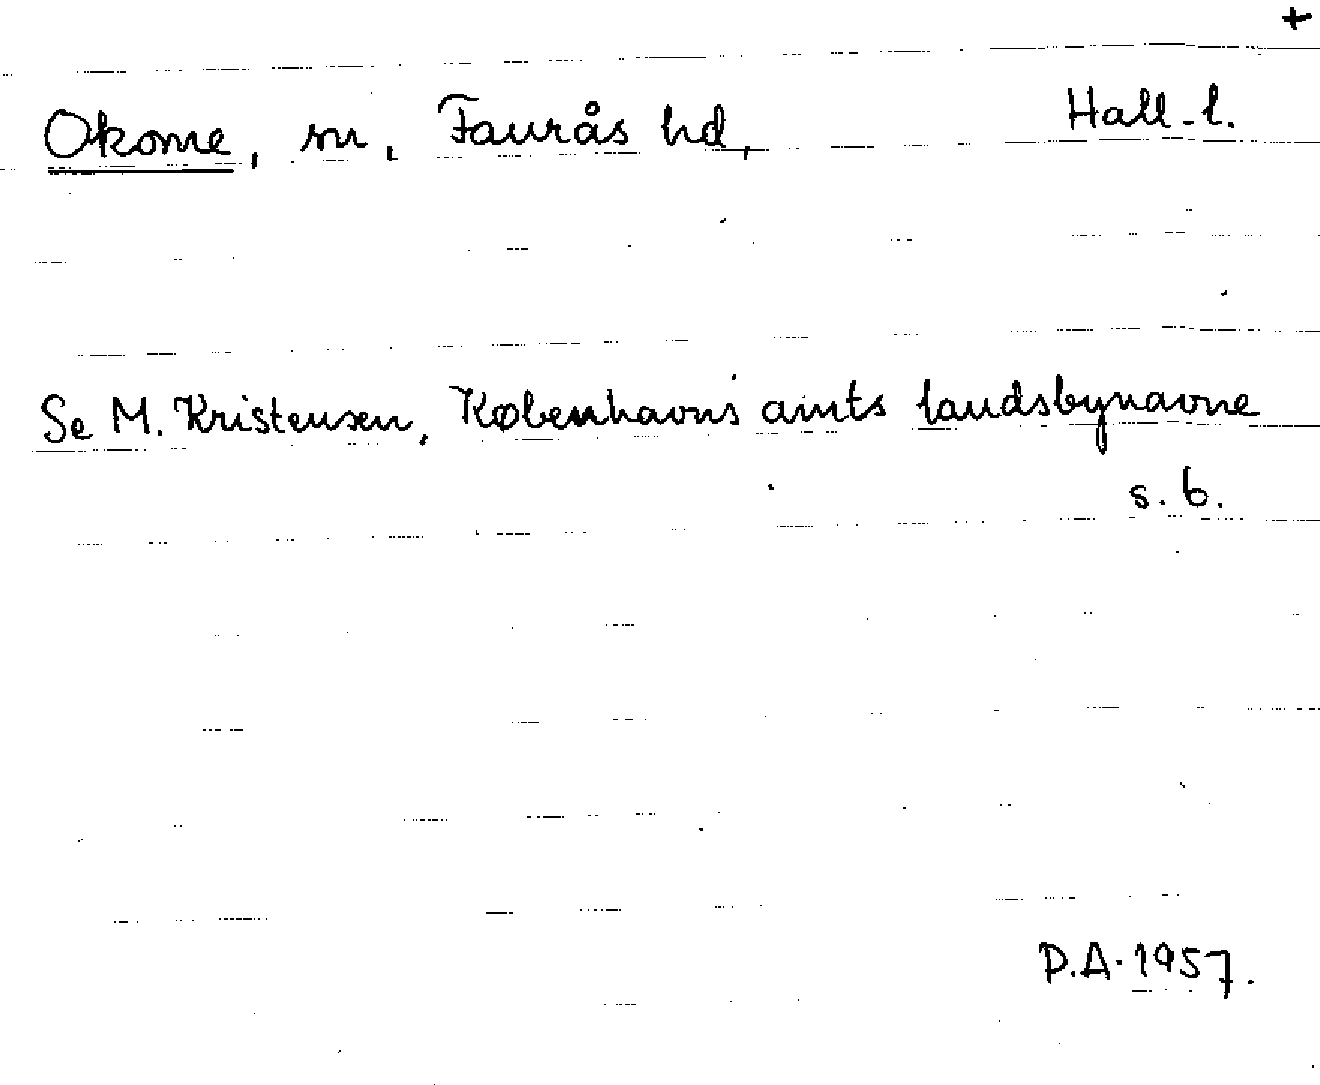 +
Okome, sn, Faurås hd, Hall-l.
Se M. Kristensen, Københavns amts landsbynavne
s. 6.
P.A. 1957.